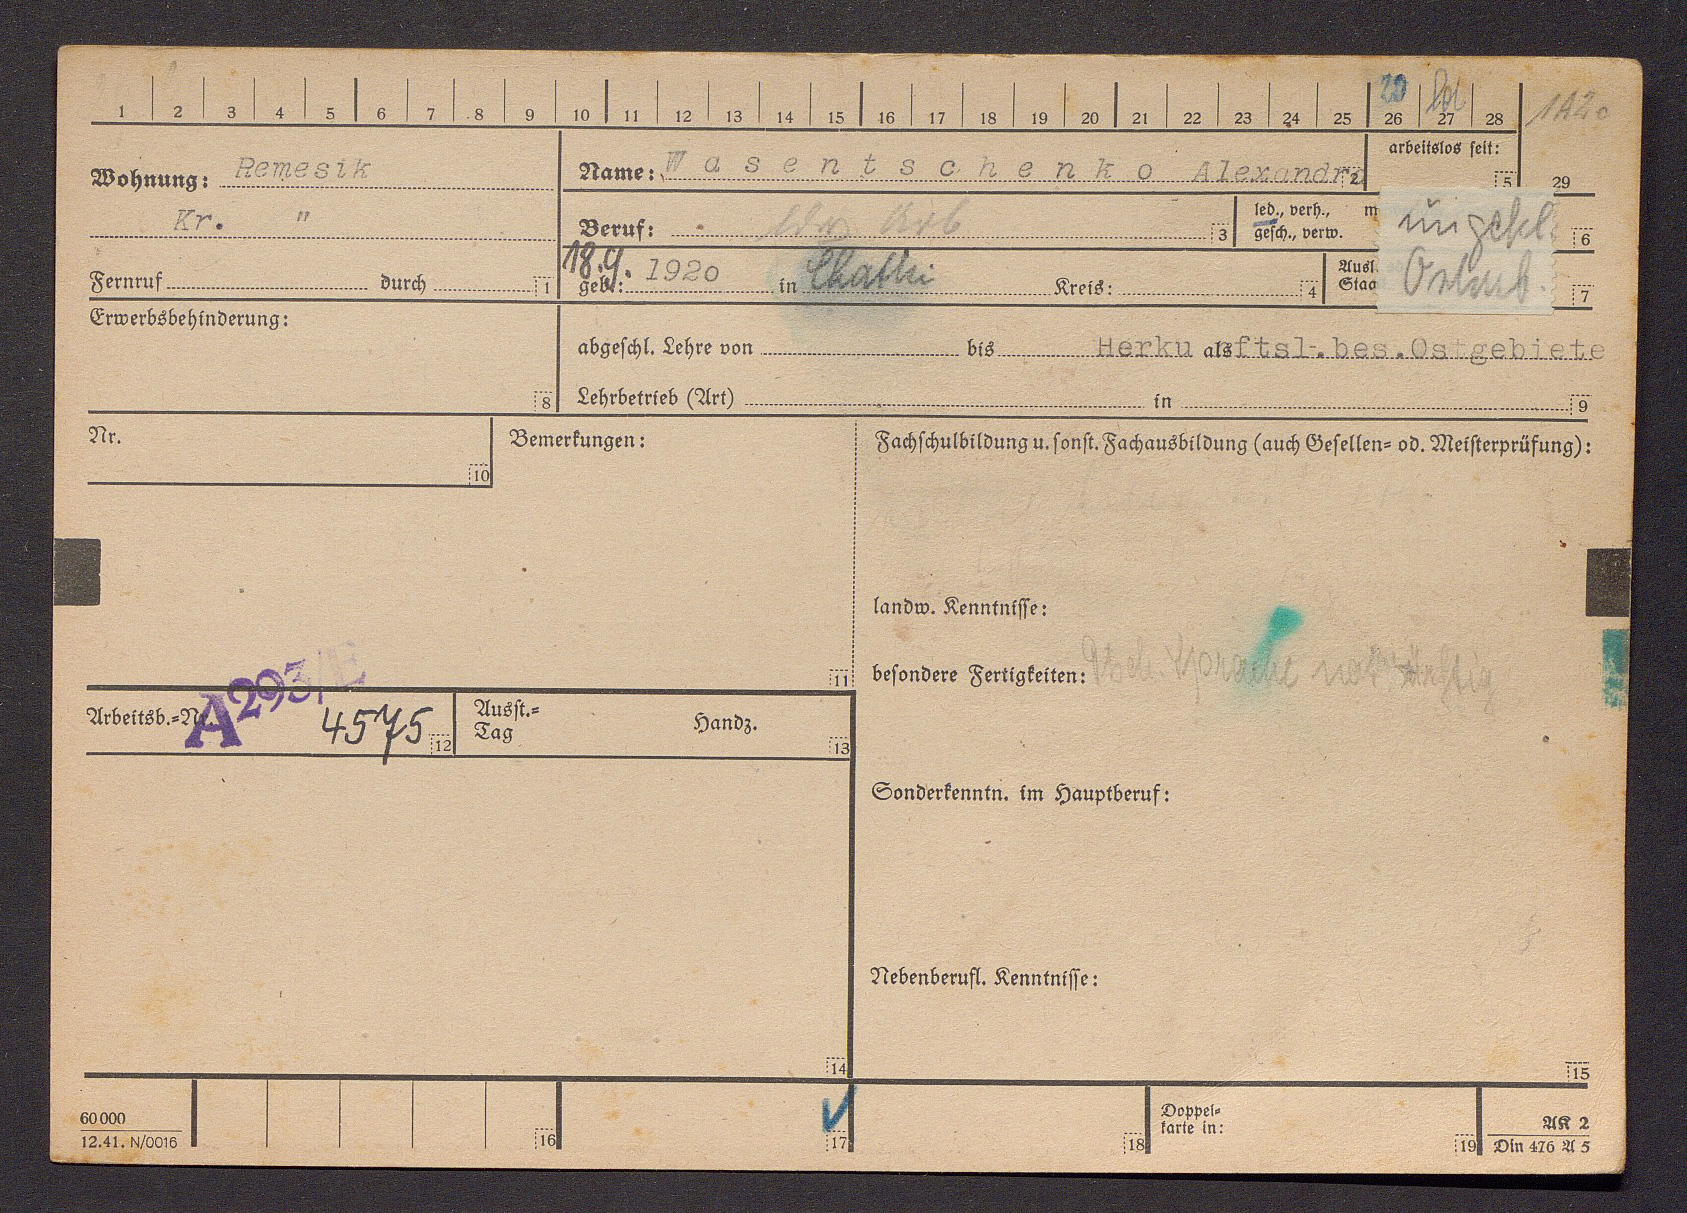 1 2 3 4 5 6 7 8 9 10 11 12 13 14 15 16 17 18 19 20 21 22 23 24 25 26 27 28 1A2c
20
arbeitslos seit:
5 29
Wohnung: Remesik
Kr. "
Fernruf durch 1
Name: Wasentschenko Alexandra 2
Beruf: ldw Arb 3
led., verh.,
gesch., verw.
ungekl.
Ostarb.
6
18.9.
geb.: 1920 in Kreis: 4
Ausl.
Staa
7
Erwerbsbehinderung:
8
abgeschl. Lehre von bis Herku als ftsl-.bes.Ostgebiete
Lehrbetrieb (Art) in 9
Nr.
10
Bemerkungen:
11
Fachschulbildung u. sonst. Fachausbildung (auch Gesellen- od. Meisterprüfung):
landw. Kenntnisse:
besondere Fertigkeiten: Dtsch. Sprache notdürftig
Arbeitsb.-Nr. A293/E 4575 12
Ausst.-
Tag
Handz.
13
Sonderkenntn. im Hauptberuf:
Nebenberufl. Kenntnisse:
14
15
60 000
12.41. N/0016
16
17
18
Doppel-
karte in:
19
AK 2
Din 476 A 5